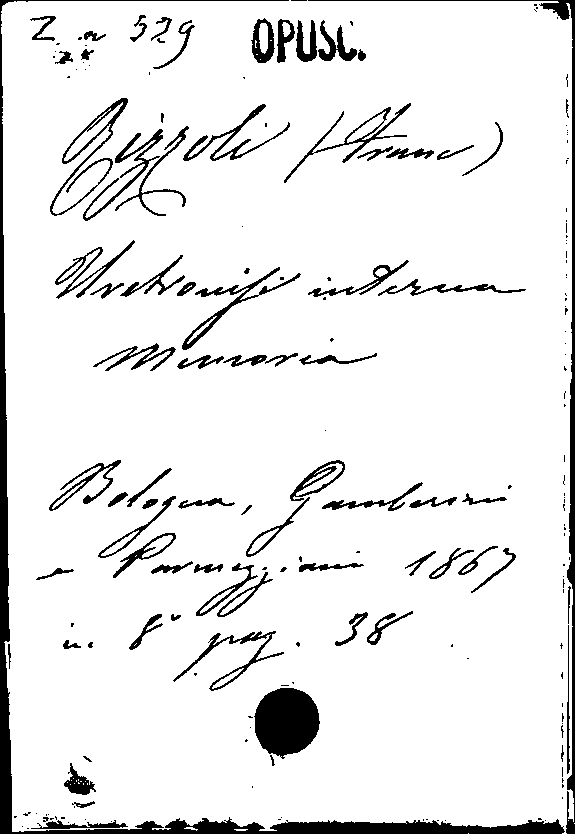 Z n 529 OPUSC.
Rizzoli (Franc)
Uretronisi interna
Memoria
Bologna, Gamberini
e Parmeggiani 1867
in 8° pag. 38